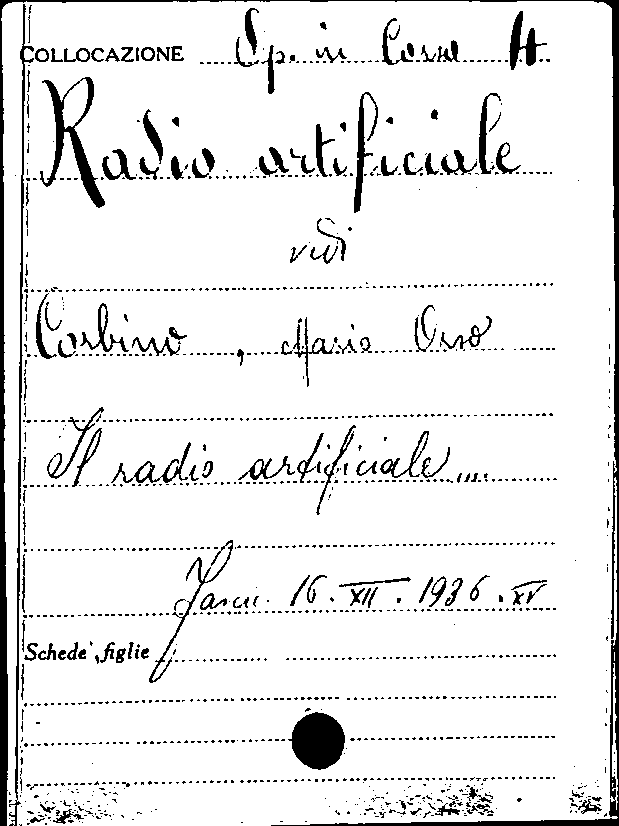 COLLOCAZIONE Sp. in Corso H
Radio artificiale
vedi
Corbino, Mario Orso
Il radio artificiale....
Fascu. 16. XII. 1936. XV
Schede figlie